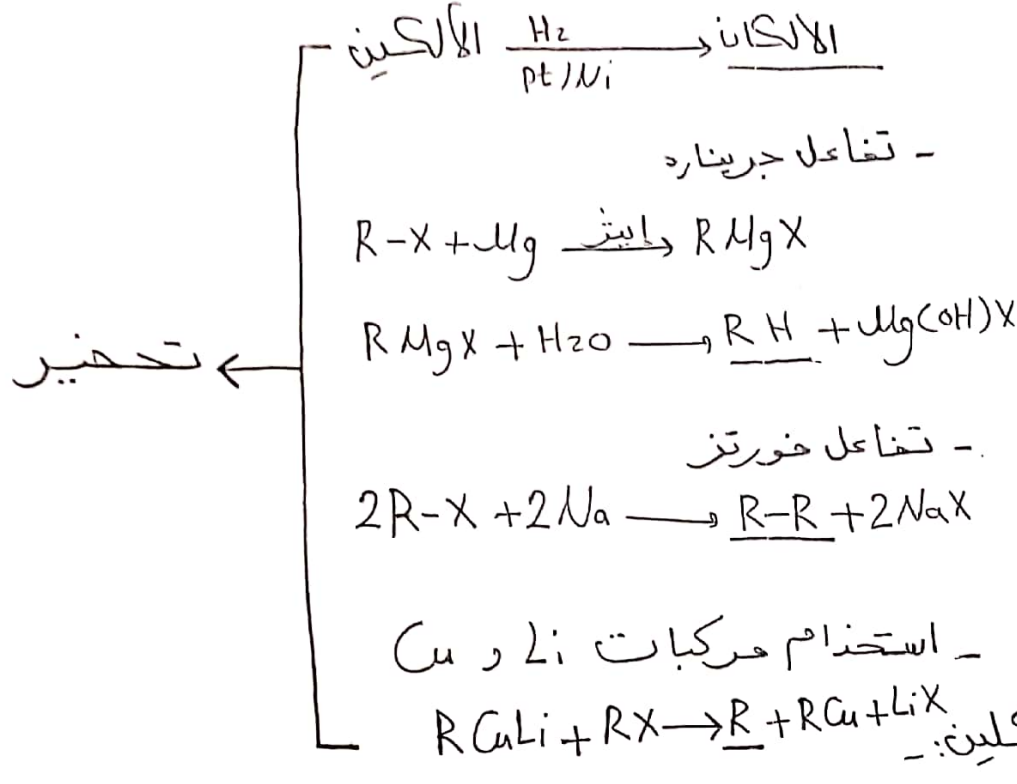 الألكين H2 pt/Ni → الالكان
- تفاعل جرينارد
R-X + Mg ايثر → RMgX
RMgX + H2O → RH + Mg(OH)X
تحضير
- تفاعل فورتز
2R-X + 2Na → R-R + 2NaX
- استخدام مركبات Li و Cu
RCuLi + RX → R + RCu + LiX